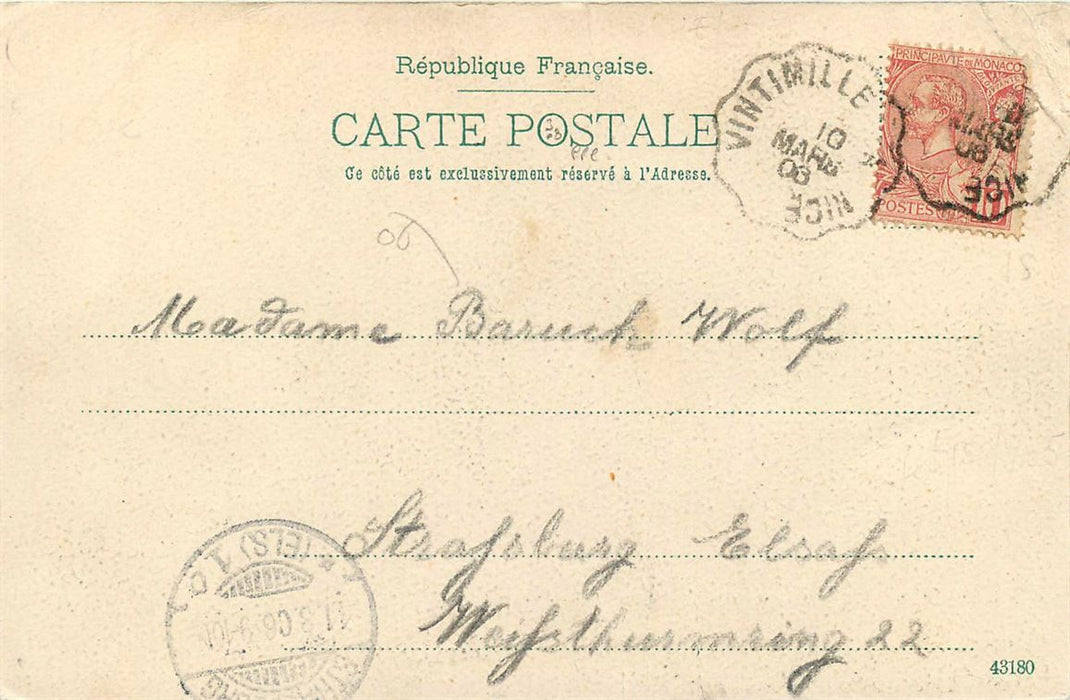 République Française.
CARTE POSTALE
Ce côté est exclussivement réservé à l'Adresse.
VINTIMILLE
10
MARS
06
NICE
PRINCIPAUTÉ DE MONACO
POSTES
MARS
NICE
06
Madame Baruch Wolf
Straßburg Elsaß
Weißthurmring 22
(ELS) 1
11.3.06.9-10V
43180